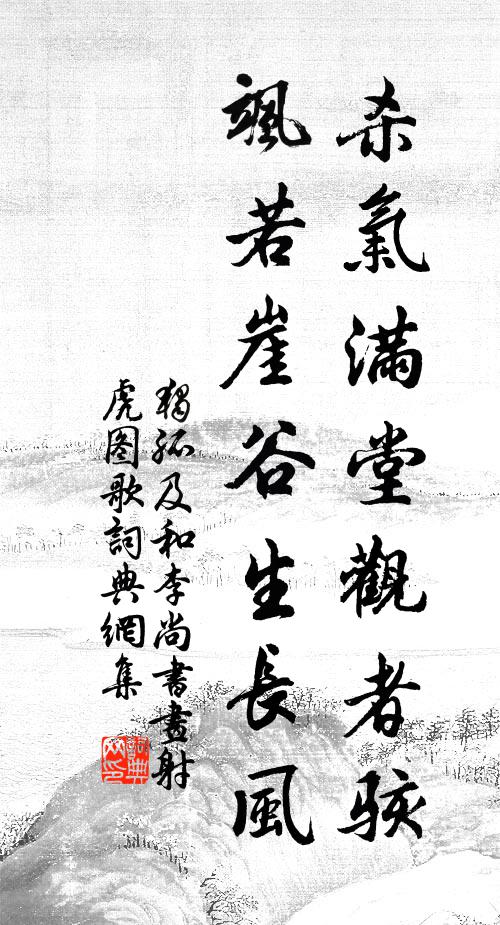 杀氣滿堂觀者駭
颯若崖谷生長風
獨孤及和李尚書畫射
虎图歌詞典網集